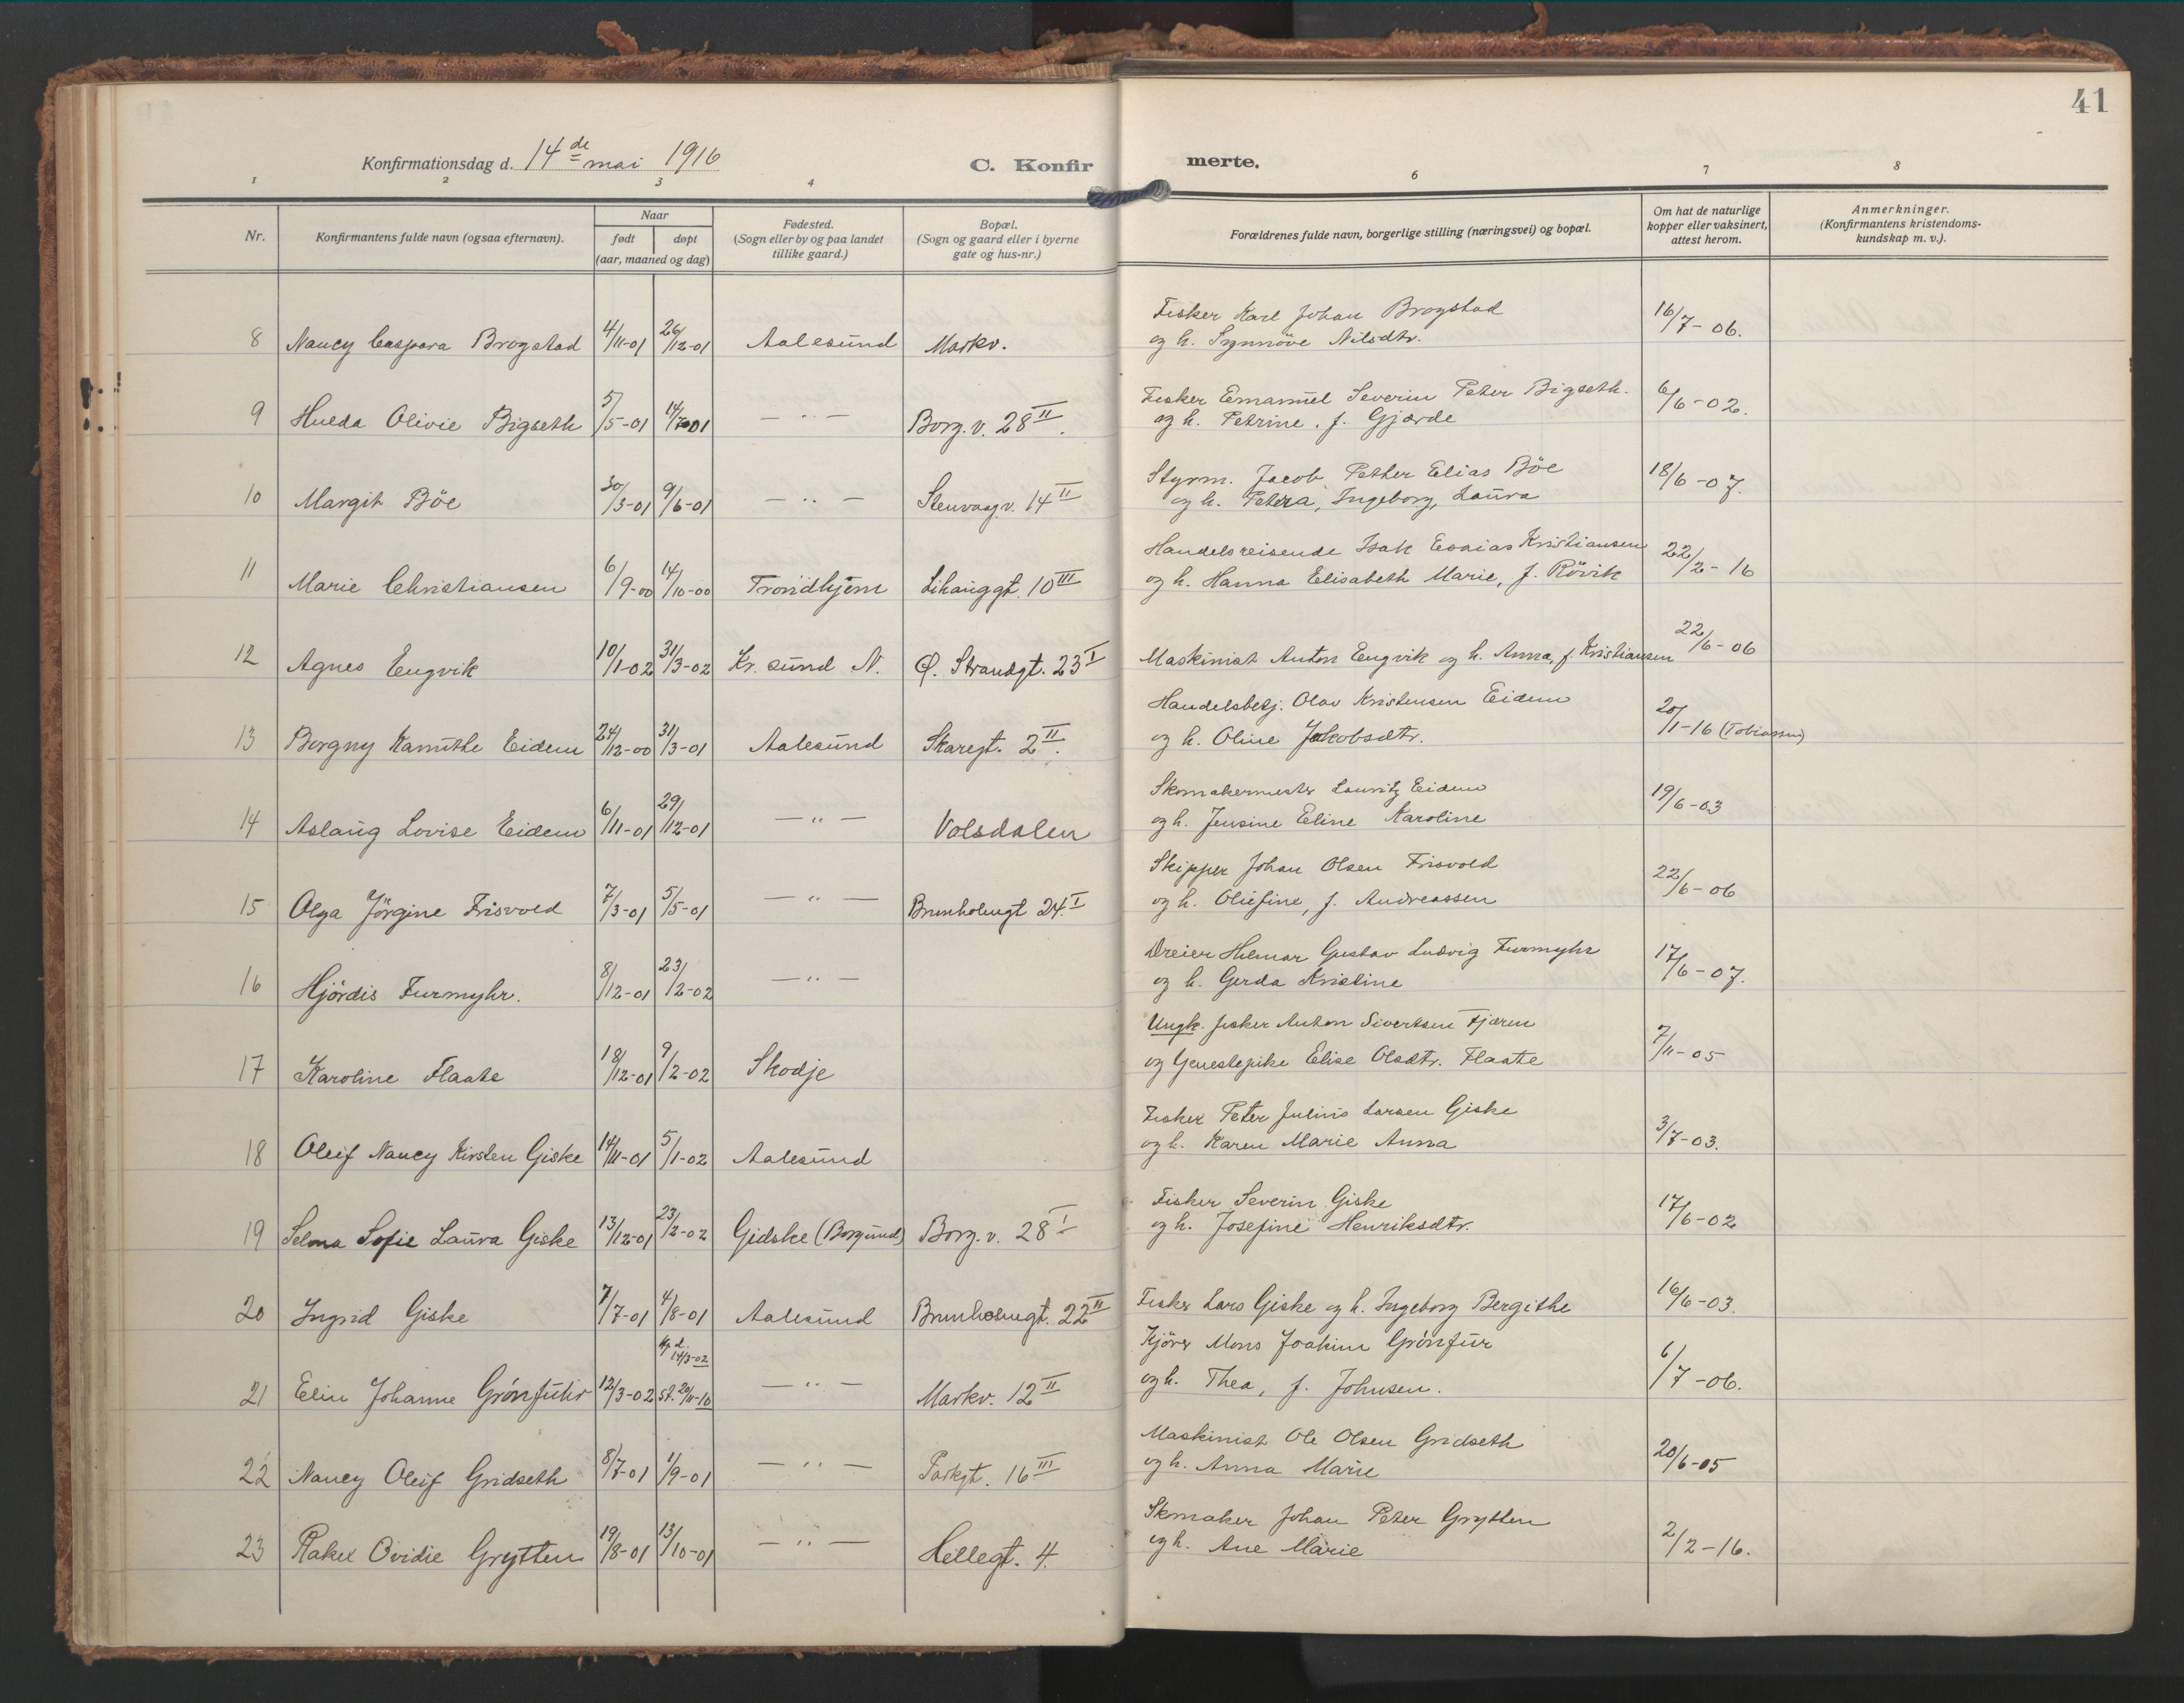 41
Konfirmationsdag d. 14de mai 1916
C. Konfirmerte.
1 2 3 4 6 7 8
Nr. Konfirmantens fulde navn (ogsaa efternavn). Naar født døpt (aar, maaned og dag) Fødested. (Sogn eller by og paa landet tillike gaard.) Bopæl. (Sogn og gaard eller i byerne gate og hus-nr.) Forældrenes fulde navn, borgerlige stilling (næringsvei) og bopæl. Om hat de naturlige kopper eller vaksinert, attest herom. Anmerkninger. (Konfirmantens kristendoms-kundskap m. v.).
8 Nancy Caspara Brogstad 4/11-01 26/12-01 Aalesund Markv. Fisker Karl Johan Brogstad 16/7-06.
og h. Synnöve Nilsdtr.
9 Hulda Olivie Bigseth 5/5-01 14/7-01 — " — Borg.v. 28 II. Fisker Emanuel Severin Peter Bigseth. 6/6-02.
og h. Petrine, f. Gjærde
10 Margit Böe 30/3-01 9/6-01 — " — Stenvaagv. 14 II Styrm. Jacob Petter Elias Böe 18/6-07.
og h. Petra, Ingeborg, Laura
11 Marie Christiansen 6/9-00 14/10-00 Trondhjem Lihauggt. 10 III Handelsreisende Isak Esaias Kristiansen 22/2-16
og h. Hanna Elisabeth Marie, f. Rövik
12 Agnes Engvik 10/1-02 31/3-02 Kr.sund N. Ø. Strandgt. 23 I Maskinist Anton Engvik og h. Anna, f. Kristiansen 22/6-06
13 Borgny Kamithe Eidem 24/12-00 31/3-01 Aalesund Skaregt. 2 II. Handelsbetj. Olav Kristensen Eidem 20/1-16 (Tobiassen)
og h. Oline Jakobsdtr.
14 Aslaug Lovise Eidem 6/11-01 29/12-01 — " — Volsdalen Skomakermester Lauritz Eidem 19/6-03
og h. Jensine Eline Karoline
15 Olga Jörgine Frisvold 7/3-01 5/5-01 — " — Brunholmgt 24 I Skipper Johan Olsen Frisvold 22/6-06
og h. Oliefine, f. Andreassen
16 Hjördis Furmyhr. 8/12-01 23/2-02 — " — Dreier Hilmar Gustav Ludvig Furmyhr 17/6-07.
og h. Gerda Kristine
17 Karoline Flaate 18/12-01 9/2-02 Skodje Ungk. fisker Anton Sivertsen Fjæren 7/11-05
og Tjenestepike Elise Olsdtr. Flaate
18 Oleif Nancy Kirsten Giske 14/11-01 5/1-02 Aalesund Fisker Peter Julius Larsen Giske 3/7-03.
og h. Karen Marie Anna
19 Selma Sofie Laura Giske 13/12-01 23/2-02 Gidske (Borgund) Borg.v. 28 I Fisker Severin Giske 17/6-02
og h. Josefine Henriksdtr.
20 Ingrid Giske 7/7-01 4/8-01 Aalesund Brunholmgt. 22 II Fisker Lars Giske og h. Ingeborg Bergithe 16/6-03.
21 Elin Johanne Grönfuhr 12/3-02 hj. d. 14/3-02 st. 20/11-10 — " — Markv. 12 II Kjörer Mons Joakim Grönfur 6/7-06.
og h. Thea, f. Johnsen.
22 Nancy Oleif Gridseth 8/7-01 1/9-01 — " — Parkgt. 16 III Maskinist Ole Olsen Gridseth 20/6-05
og h. Anna Marie
23 Rakel Ovidie Grytten 19/8-01 13/10-01 — " — Hellegt. 4. Skomaker Johan Peter Grytten 2/2-16.
og h. Ane Marie